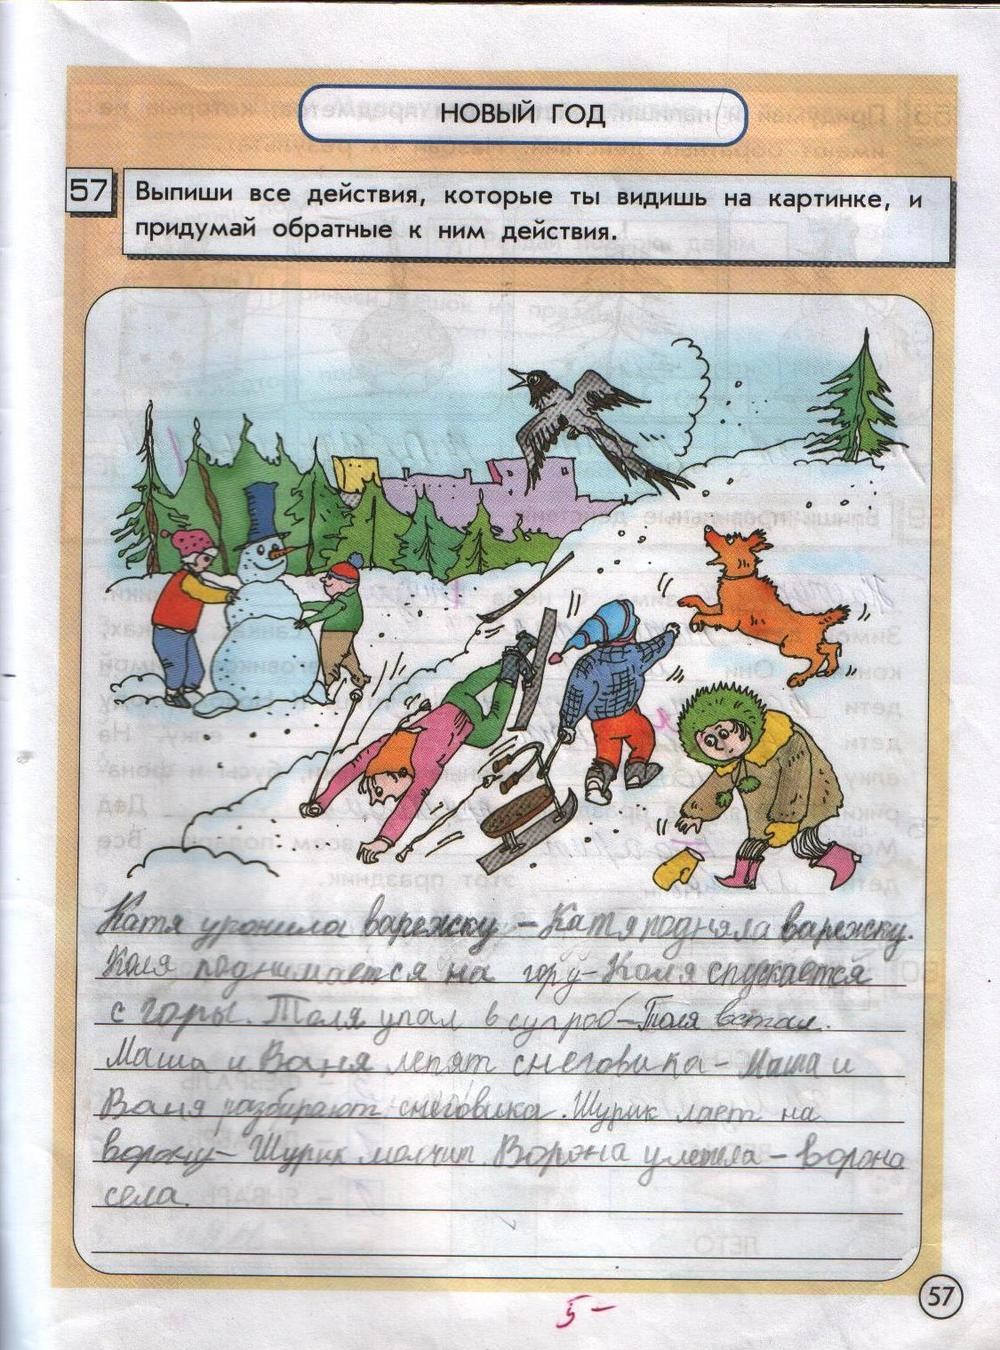 НОВЫЙ ГОД
57
Выпиши все действия, которые ты видишь на картинке, и
придумай обратные к ним действия.
Катя уронила варежку – Катя подняла варежку.
Коля поднимается на гору – Коля спускается
с горы. Толя упал в сугроб – Толя встал.
Маша и Ваня лепят снеговика – Маша и
Ваня разбирают снеговика. Шурик лает на
ворону – Шурик молчит. Ворона улетела – ворона
села.
57
5-